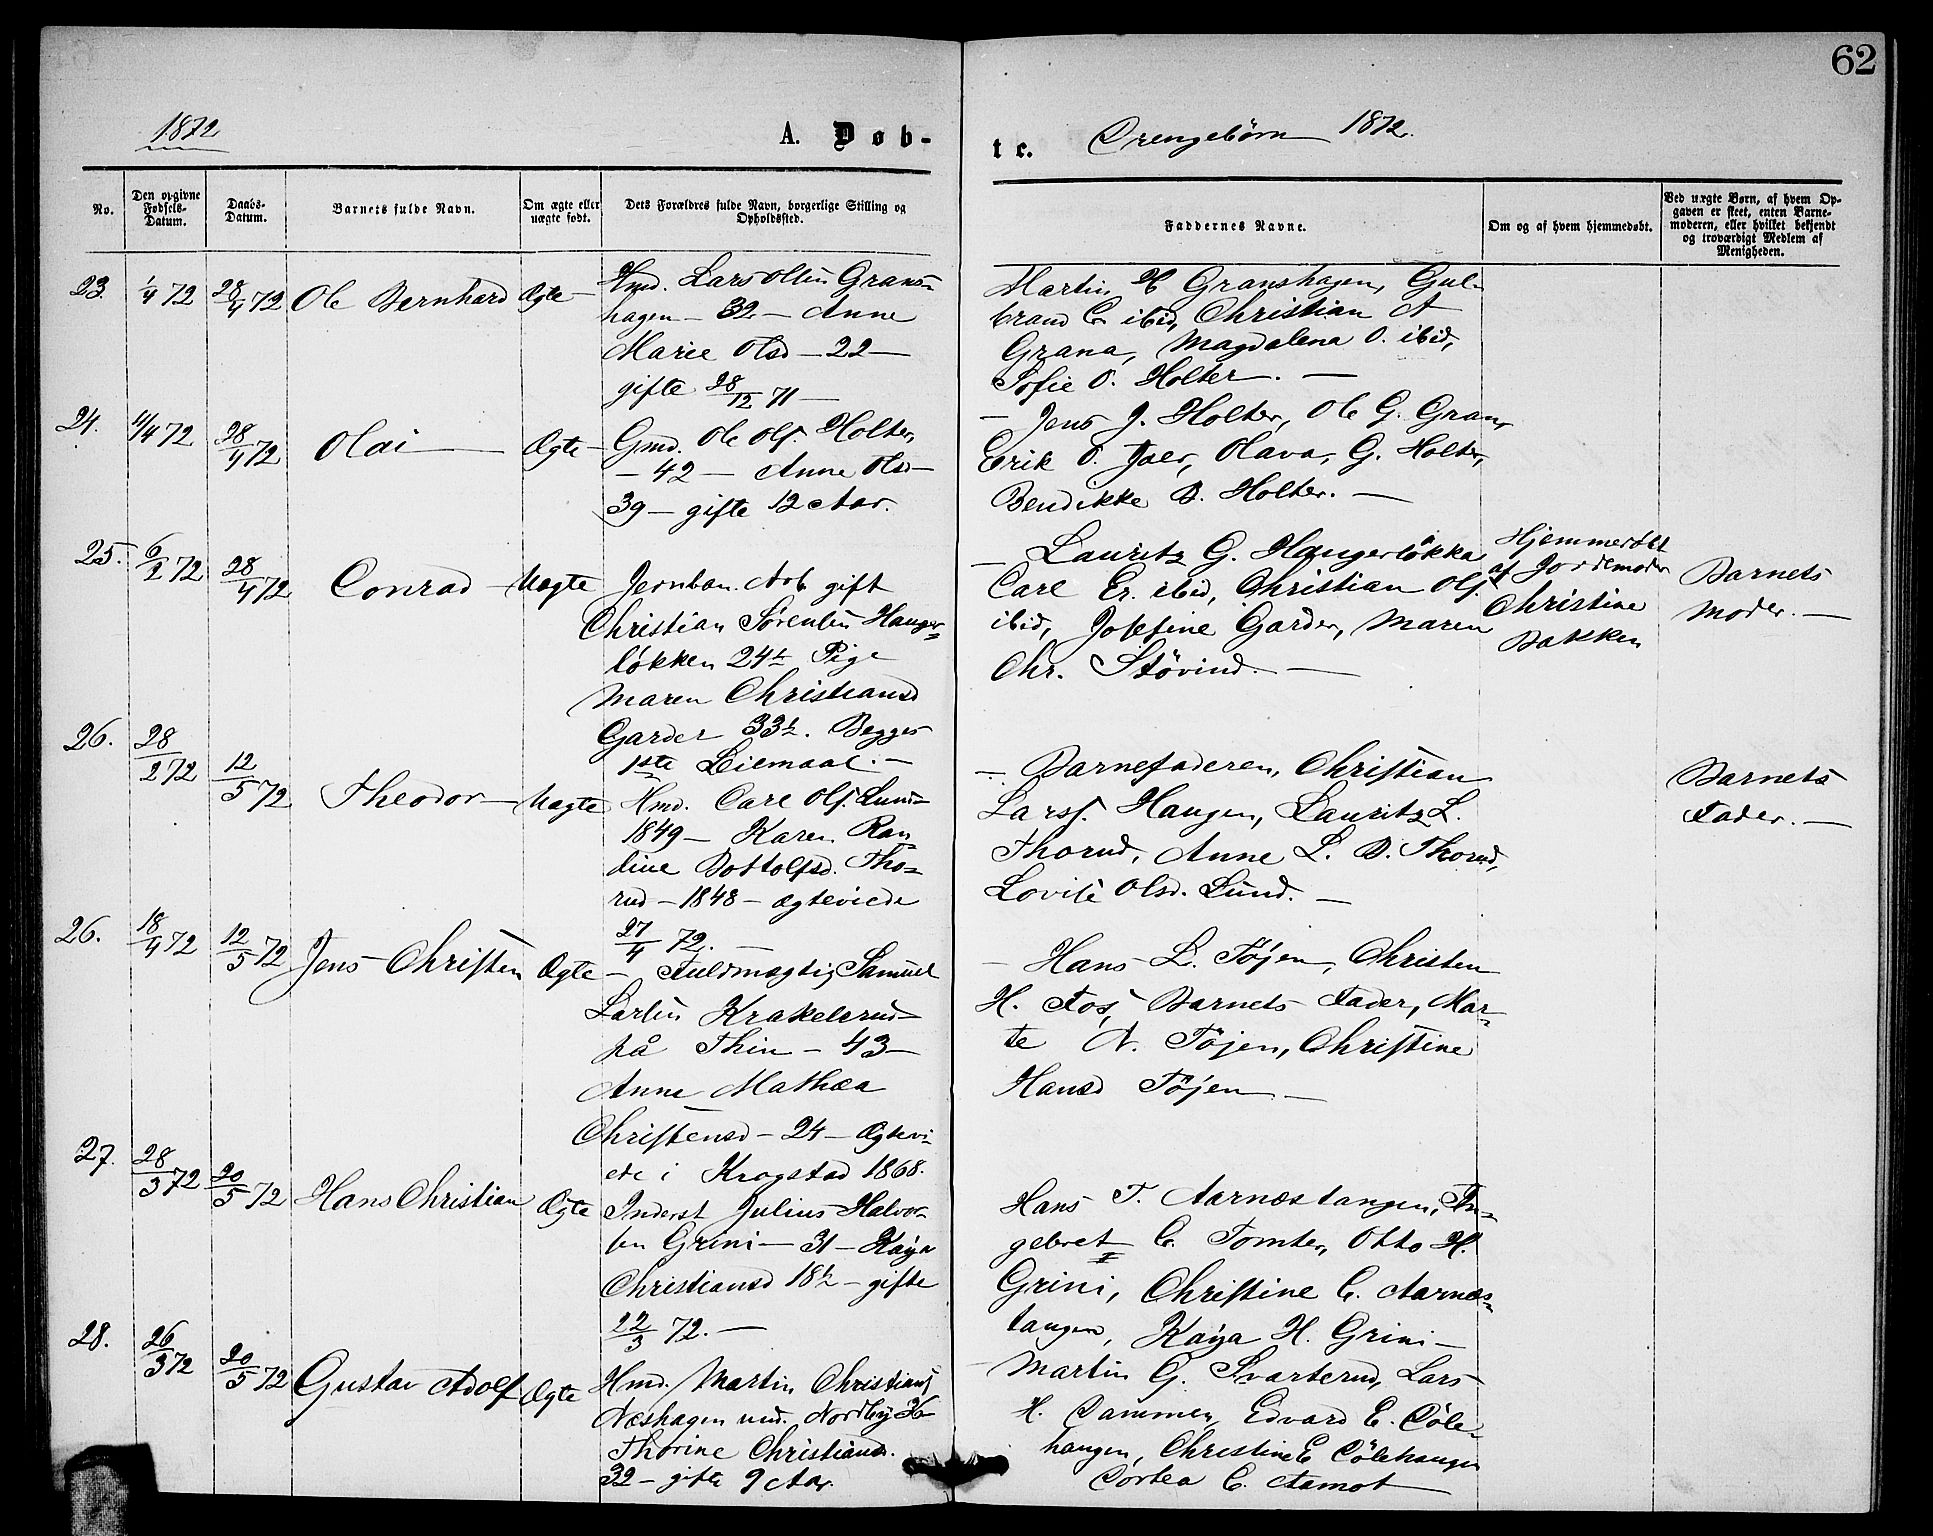 62
1872
A. Døb-
te.
Drengebørn 1872.
No.
Den opgivne Fødsels-Datum.
Daabs-Datum.
Barnets fulde Navn.
Om ægte eller uægte født.
Dets Forældres fulde Navn, borgerlige Stilling og Opholdssted.
Faddernes Navne.
Om og af hvem hjemmedøbt.
Ved uægte Børn, af hvem Opgaven er skeet, enten Barnemoderen, eller hvilket bekjendt og troværdigt Medlem af Menigheden.
23. 1/4 72 28/4 72 Ole Bernhard Ægte
Hmd. Lars Olsen Grans-
hagen - 32 - Anne
Marie Olsd - 22 -
gifte 28/12 71 -
Martin H Granshagen, Gul-
brand C. ibid, Christian A
Grana, Magdalena O. ibid,
Sofie O. Holter. -
24. 11/4 72 28/4 72 Olai Ægte
Gmd. Ole Ols. Holter,
- 42 - Anne Olsd
39 - gifte 12 Aar.
- Jens J. Holter, Ole G. Gran,
Erik O. Jaer, Olava, G. Holter,
Bendikke B. Holter. -
25. 6/2 72 28/4 72 Conrad - Uægte
Jernban. Arb. gift
Christian Sörensen Hanger-
lökken 24½ Pige
Maren Christiansd
Garder 33½. Begges
1ste Leiermaal. -
- Lauritz G. Hangerløkka
Carl Er. ibid, Christian Ols.
ibid, Josefine Garder, Maren
Chr. Stövind. -
Hjemmedøbt
af Jordemoder
Christine
Bakken
Barnets
Moder. -
26. 28/2 72 12/5 72 Theodor - Uægte
Hmd. Carl Ols. Lund-
1849 - Karen Ran
dine Bottolfsd. Tho-
rud - 1848 - ægteviede
27/4 72. -
- Barnefaderen, Christian
Larss. Haugen, Lauritz L.
Thorud, Anne L. B. Thorud,
Lovise Olsd. Lund. -
Barnets
Fader. -
26. 18/4 72 12/5 72 Jens Christen Ægte
- Fuldmægtig Samuel
Larsen Krakelerud
på Thin - 43 -
Anne Mathea
Christensd - 24 - Ægtevi-
ede i Krogstad 1868.
- Hans L. Töjen, Christen
H. Fos, Barnets Fader, Mar-
te N. Töjen, Christine
Hansd Töjen -
27. 28/3 72 20/5 72 Hans Christian Ægte
Inderst Julius Halvor-
sen Grini - 31 - Kaja
Christiansd 18½ - gifte
22/3 72. -
Hans T. Aarnæstangen, In-
gebret C. Tomter, Otto H.
Grini, Christine C. Aarnæs-
tangen, Kaja H. Grini -
28. 26/3 72 20/5 72 Gustav Adolf Ægte
Hmd. Martin Christians
Næshagen und. Nordby 36
Thorine Christiansd.
32 - gifte 9 Aar.
- Martin G. Svarterud, Lars
H. Dammen, Edvard E. Döle-
hangen, Christine E Dölehangen
Dortea C. Aamot